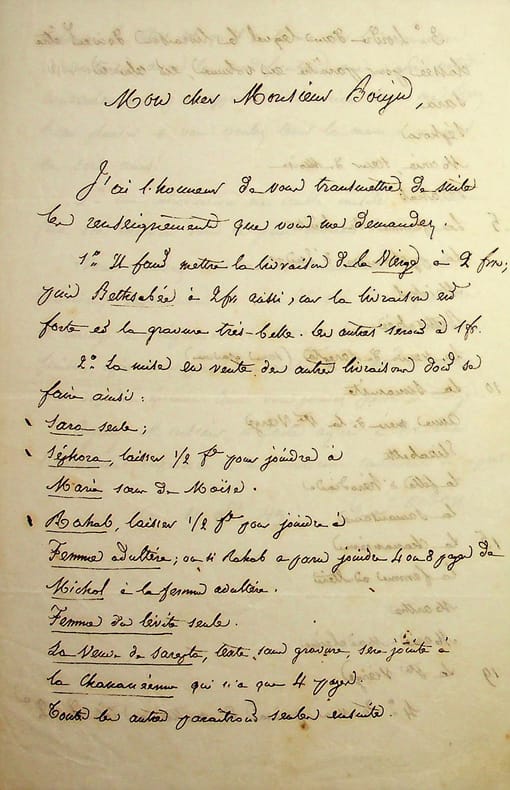 Mon cher Monsieur Bouju,
J'ai l'honneur de vous transmettre de suite
les renseignements que vous me demandez.
1° Il faut mettre la livraison de la Vierge à 2 frs;
puis Bethsabée à 2 fr aussi, car la livraison est
forte et la gravure très-belle. Les autres seront à 1 fr.
2° La mise en vente des autres livraisons doit se
faire ainsi:
Sara seule;
Séphora, laisser 1/2 f^e pour joindre à
Marie sœur de Moïse.
Rahab, laisser 1/2 f^e pour joindre à
Femme adultère; ou si Rahab a paru joindre 4 ou 8 pages de
Michol à la femme adultère.
Femme du lévite seule.
La Veuve de Sarepta, texte sans gravure, sera jointe à
la Chananéenne qui n'a que 4 pages.
Toutes les autres paraîtront seules ensuite.